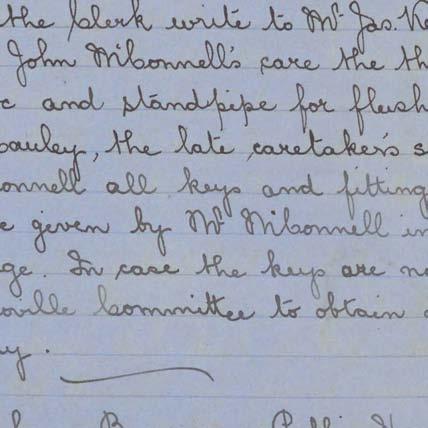 the Clerk write to Mr. Jas. Ke
John McConnell's care the th
c and standpipe for flush
cauley, the late caretaker's s
onnell all keys and fitting
e given by Mr McConnell in
ge. In case the keys are no
oville Committee to obtain
y.